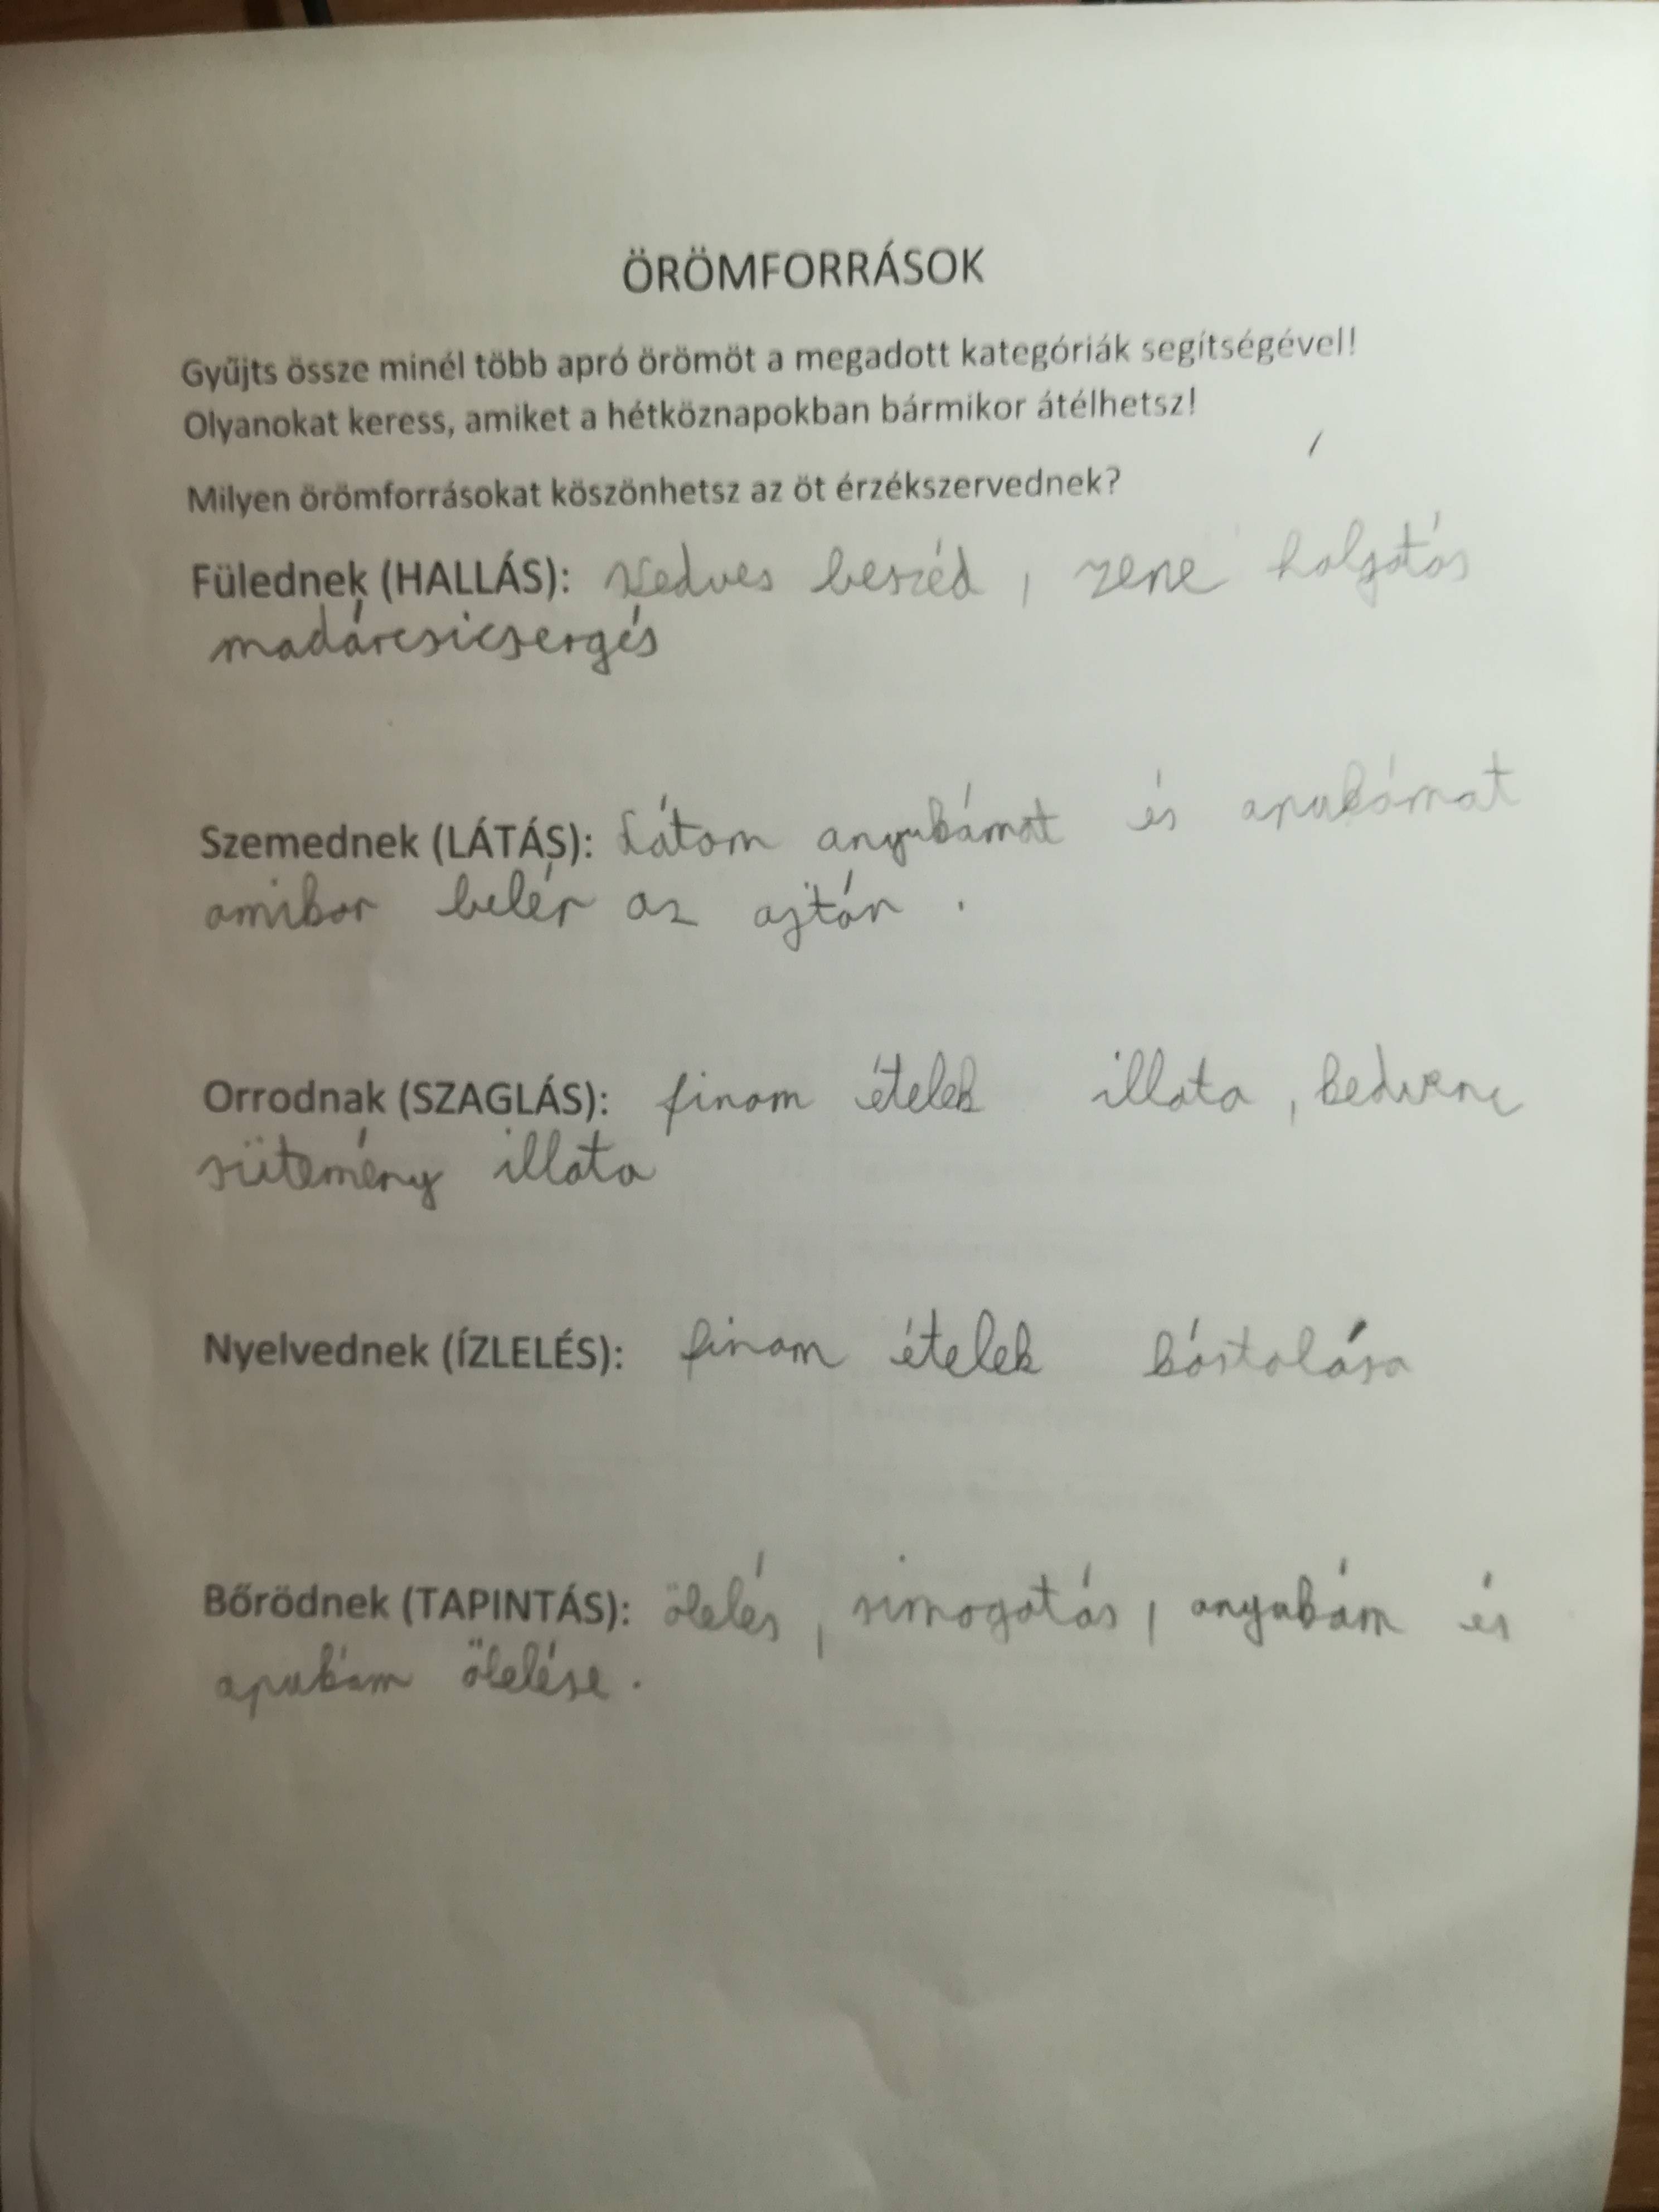 ÖRÖMFORRÁSOK
Gyűjts össze minél több apró örömöt a megadott kategóriák segítségével!
Olyanokat keress, amiket a hétköznapokban bármikor átélhetsz!
Milyen örömforrásokat köszönhetsz az öt érzékszervednek?
Fülednek (HALLÁS): Kedves beszéd, zene halgatás
madárcsicsergés
Szemednek (LÁTÁS): Látom anyukámat és apukámat
amikor belér az ajtón.
Orrodnak (SZAGLÁS): finom ételek illata, kedvenc
sütemény illata
Nyelvednek (ÍZLELÉS): finom ételek kóstolása
Bőrödnek (TAPINTÁS): ölelés, simogatás, anyukám és
apukám ölelése.